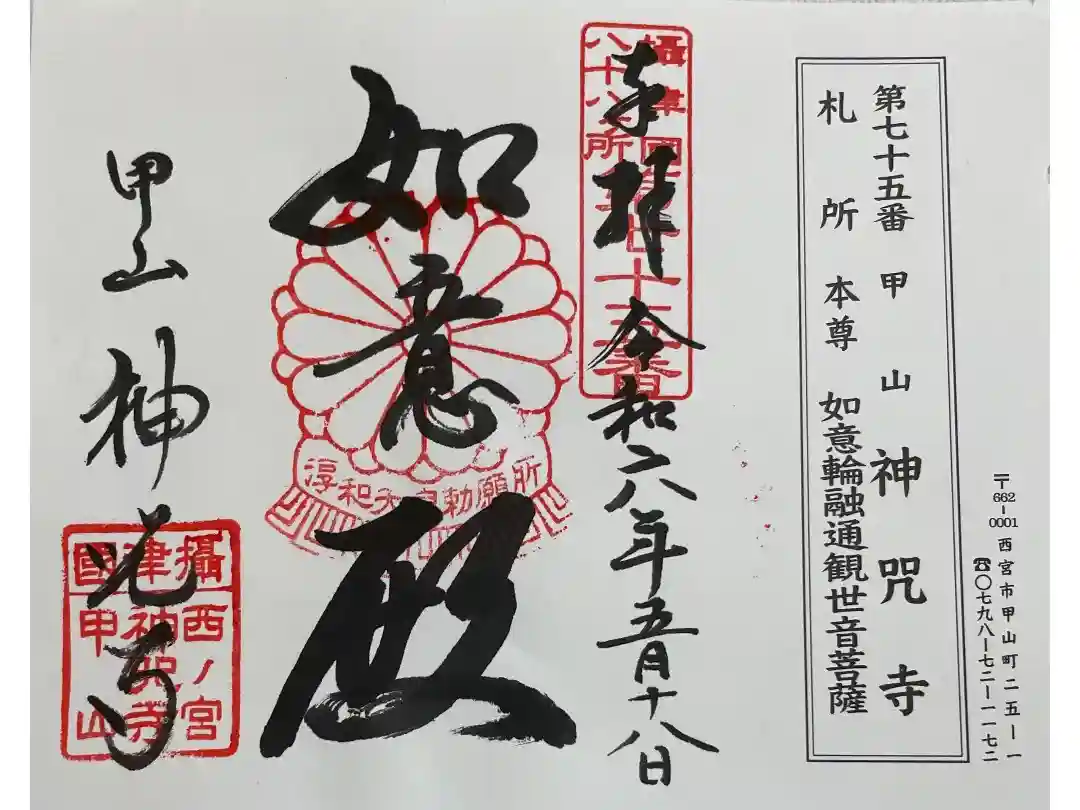 〒662-0001 西宮市甲山町二五ー一
☎〇七九八ー七二ー一一七二
第七十五番 甲山 神咒寺
札所 本尊 如意輪融通観世音菩薩
奉拝 令和六年五月十八日
攝津國
八十八所
第七十五番
如意殿
淳和天皇勅願所
甲山 神咒寺
攝津國
西ノ宮
神咒寺
甲山